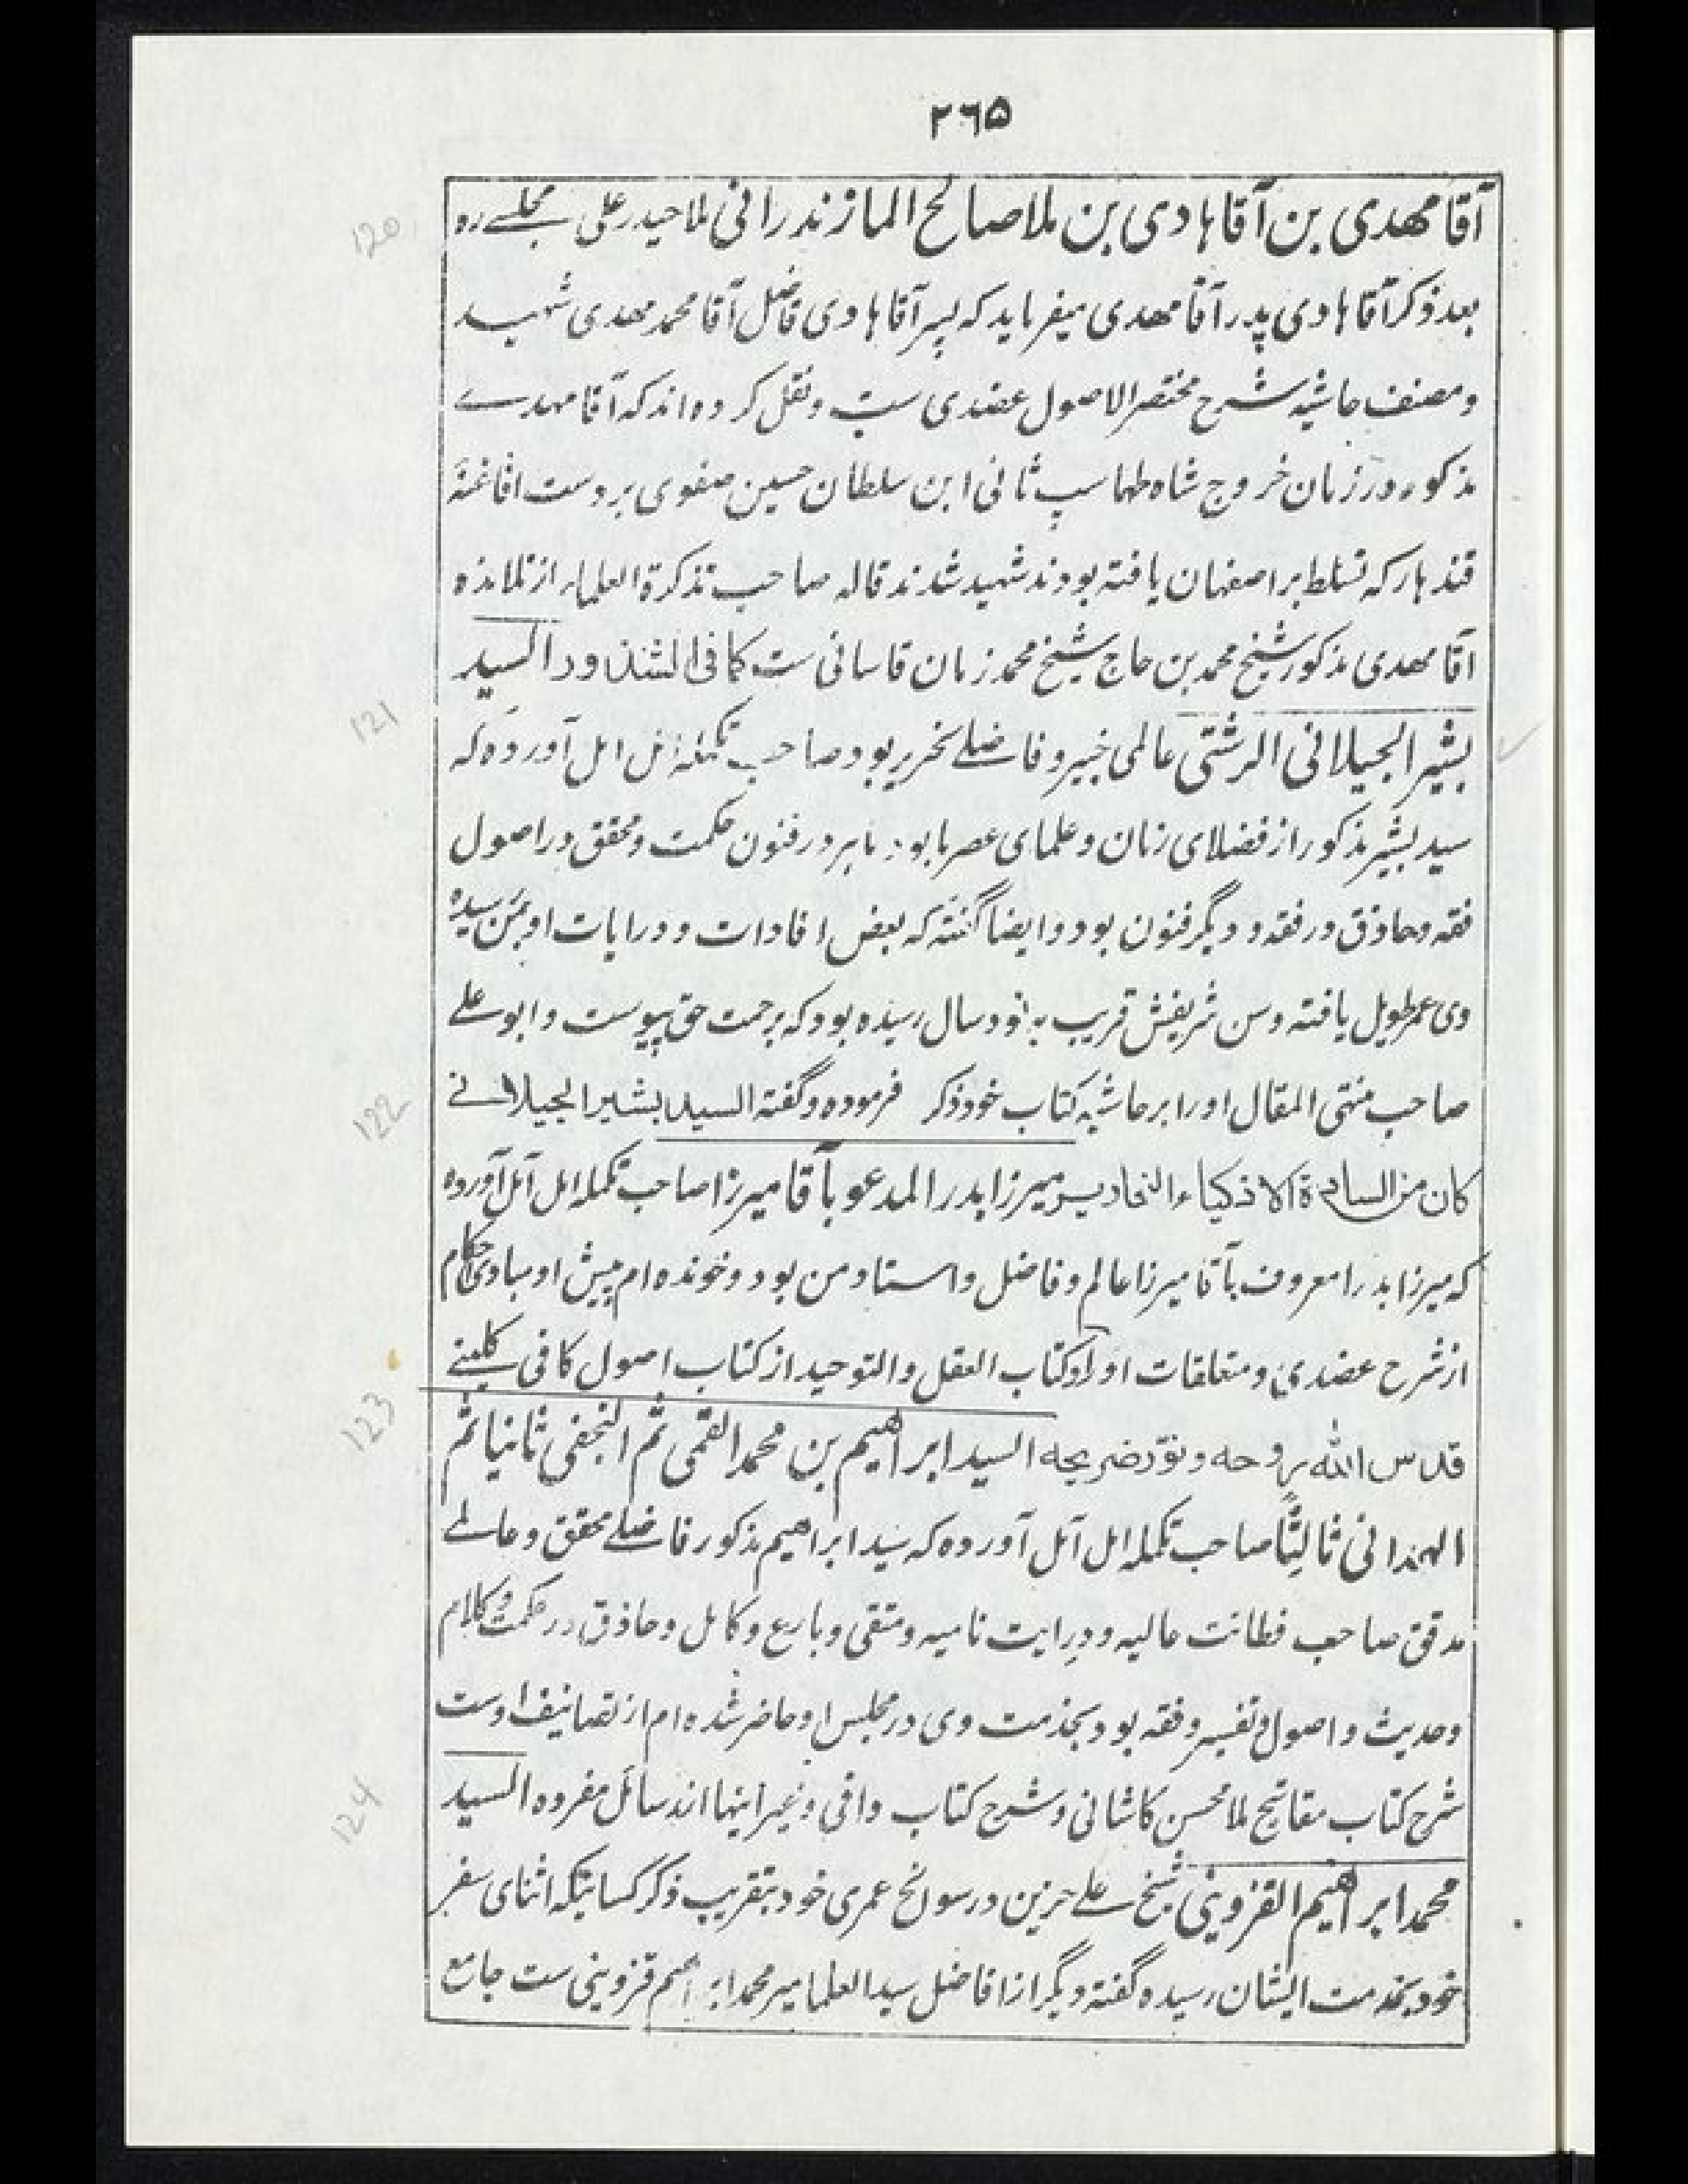 ٢٦٥
آقا مهدی بن آقا هادی بن ملا صالح المازندرانی ملا حیدر علی مجلسے ره
بعد ذکر آقا هادی پدر آقا مهدی میفرماید که پسر آقا هادی فاضل آقا محمد مهدی شهید
و مصنف حاشیه شرح مختصر الاصول عضدی ست و نقل کرده اند که آقا مهدے
مذکور در زمان خروج شاه طهماسپ ثانی ابن سلطان حسین صفوی بر دست افاغنهٔ
قندهار که تسلط بر اصفهان یافته بودند شهید شدند قاله صاحب تذکرة العلماء از تلامذه
آقا مهدی مذکور شیخ محمد بن حاج شیخ محمد زمان قاسانی ست کما فی الشذور السید
بشیر الجیلانی الرشتی عالمی خبیر و فاضلے نحریر بود صاحب تکملهٔ امل آمل آورده که
سید بشیر مذکور از فضلای زمان و علمای عصر ما بود ماهر در فنون حکمت و محقق در اصول
فقه و حاذق در فقه و دیگر فنون بود و ایضا گفته که بعض افادات و درایات او بمن رسیده
وی عمر طویل یافته و سن شریفش قریب به نود سال رسیده بود که برحمت حق پیوست و ابو علے
صاحب منتهی المقال او را بر حاشیه کتاب خود ذکر فرموده و گفته السید بشیر الجیلانے
کان من السادة الاذکیاء النحاریر میرزا بدر المدعو بآقا میرزا صاحب تکمله امل آمل آورده
که میرزا بدرا معروف بآقا میرزا عالم و فاضل و استاد من بود و خوانده ام پیش او مبادی احکام
از شرح عضدی و متعلقات او را و کتاب العقل و التوحید از کتاب اصول کافی کلینے
قدس الله روحه و نوّر ضریحه السید ابراهیم بن محمد القمی ثم النجفی ثانیا ثم
الهمدانی ثالثًا صاحب تکمله امل آمل آورده که سید ابراهیم مذکور فاضلے محقق و عالمے
مدقق صاحب فطانت عالیه و درایت نامیه و متقی و بارع و کامل و حاذق در حکمت و کلام
و حدیث و اصول و تفسیر و فقه بود بخدمت وی در مجلس او حاضر شده ام از تصانیف اوست
شرح کتاب مفاتیح ملا محسن کاشانی و شرح کتاب وافی و غیر اینها از رسائل مفرده السید
محمد ابراهیم القزوینی شیخ علے حزین در سوانح عمری خود بتقریب ذکر کسانیکه اثنای سفر
خود بخدمت ایشان رسیده گفته دیگر از افاضل سید العلما میر محمد ابراهیم قزوینی ست جامع
120
121
122
123
124